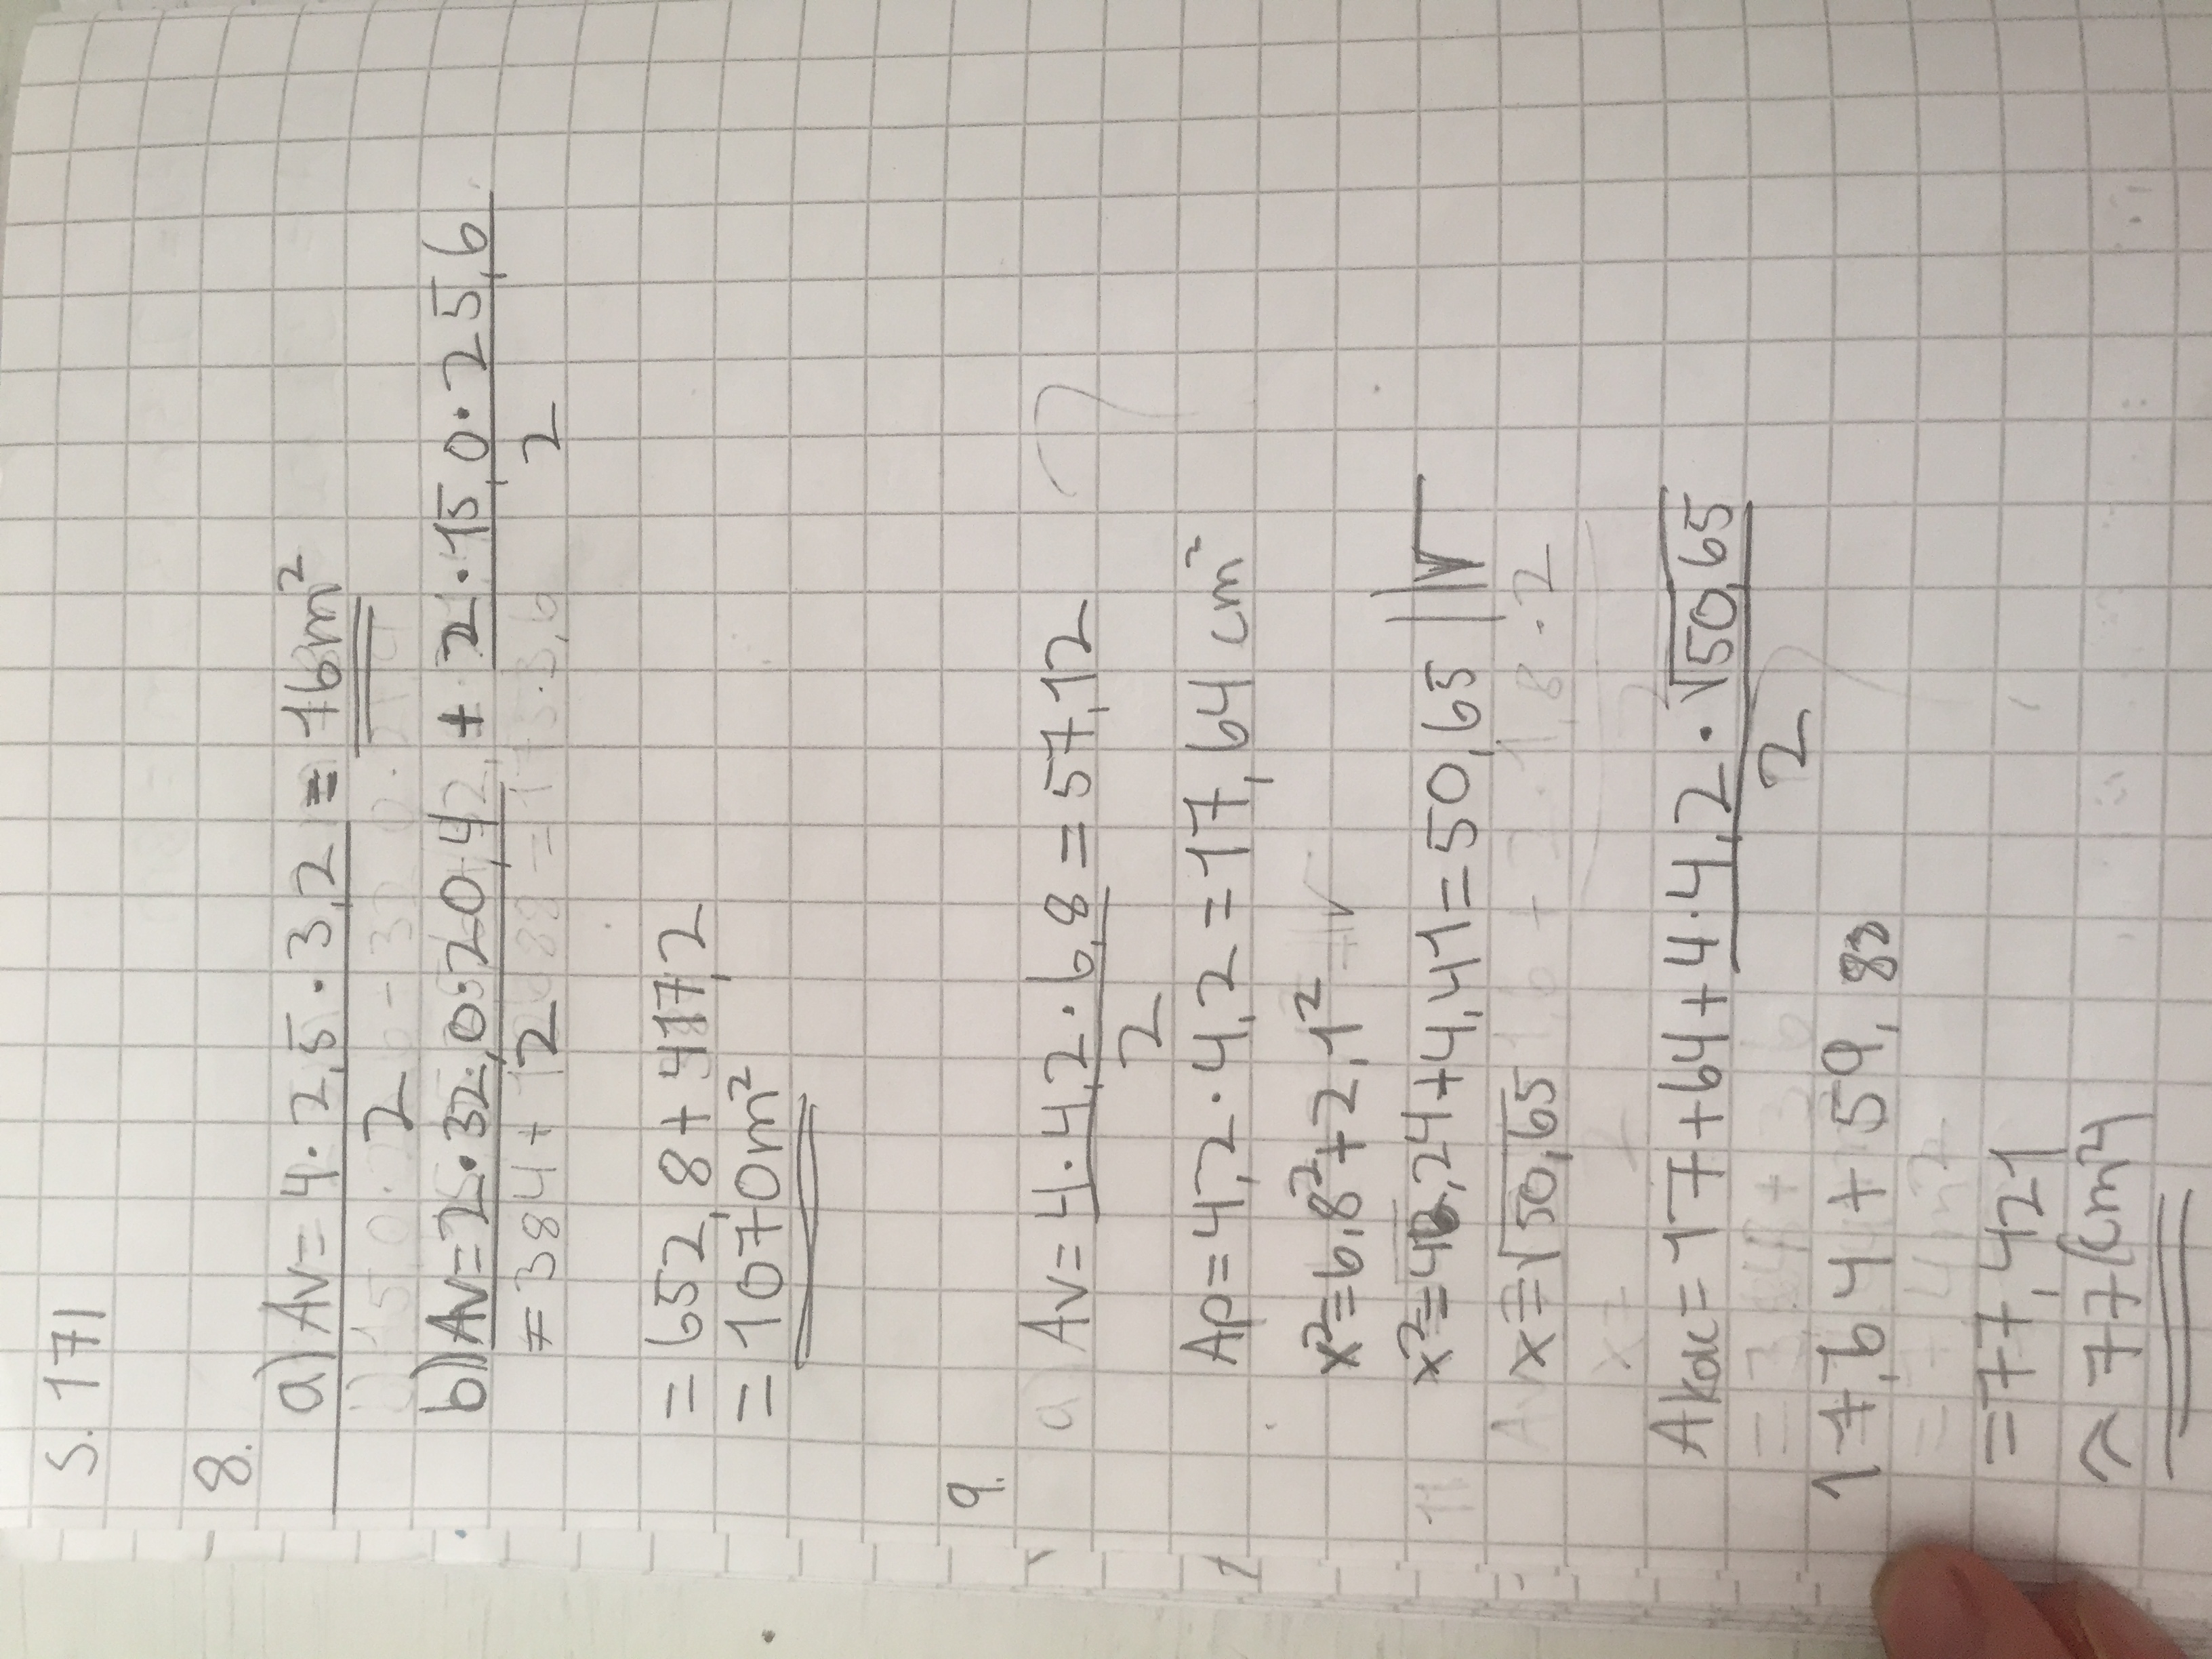 S. 171
8.
a) Av = 4 · 2,5 · 3,2 = 16m²
2
b) Av = 2 · 32,0 · 20,4 + 2 · 15,0 · 25,6
2 2
= 384 +
= 652,8 + 417,2
= 1070m²
9.
a) Av = 4 · 4,2 · 6,8 = 57,12
2
Ap = 4,2 · 4,2 = 17,64 cm²
x² = 6,8² + 2,1²
x² = 46,24 + 4,41 = 50,65 ||√
x = √50,65
Akok = 17+64+4·4,2 · √50,65
2
17,64 + 59,88
= 77,421
≈ 77 (cm²)